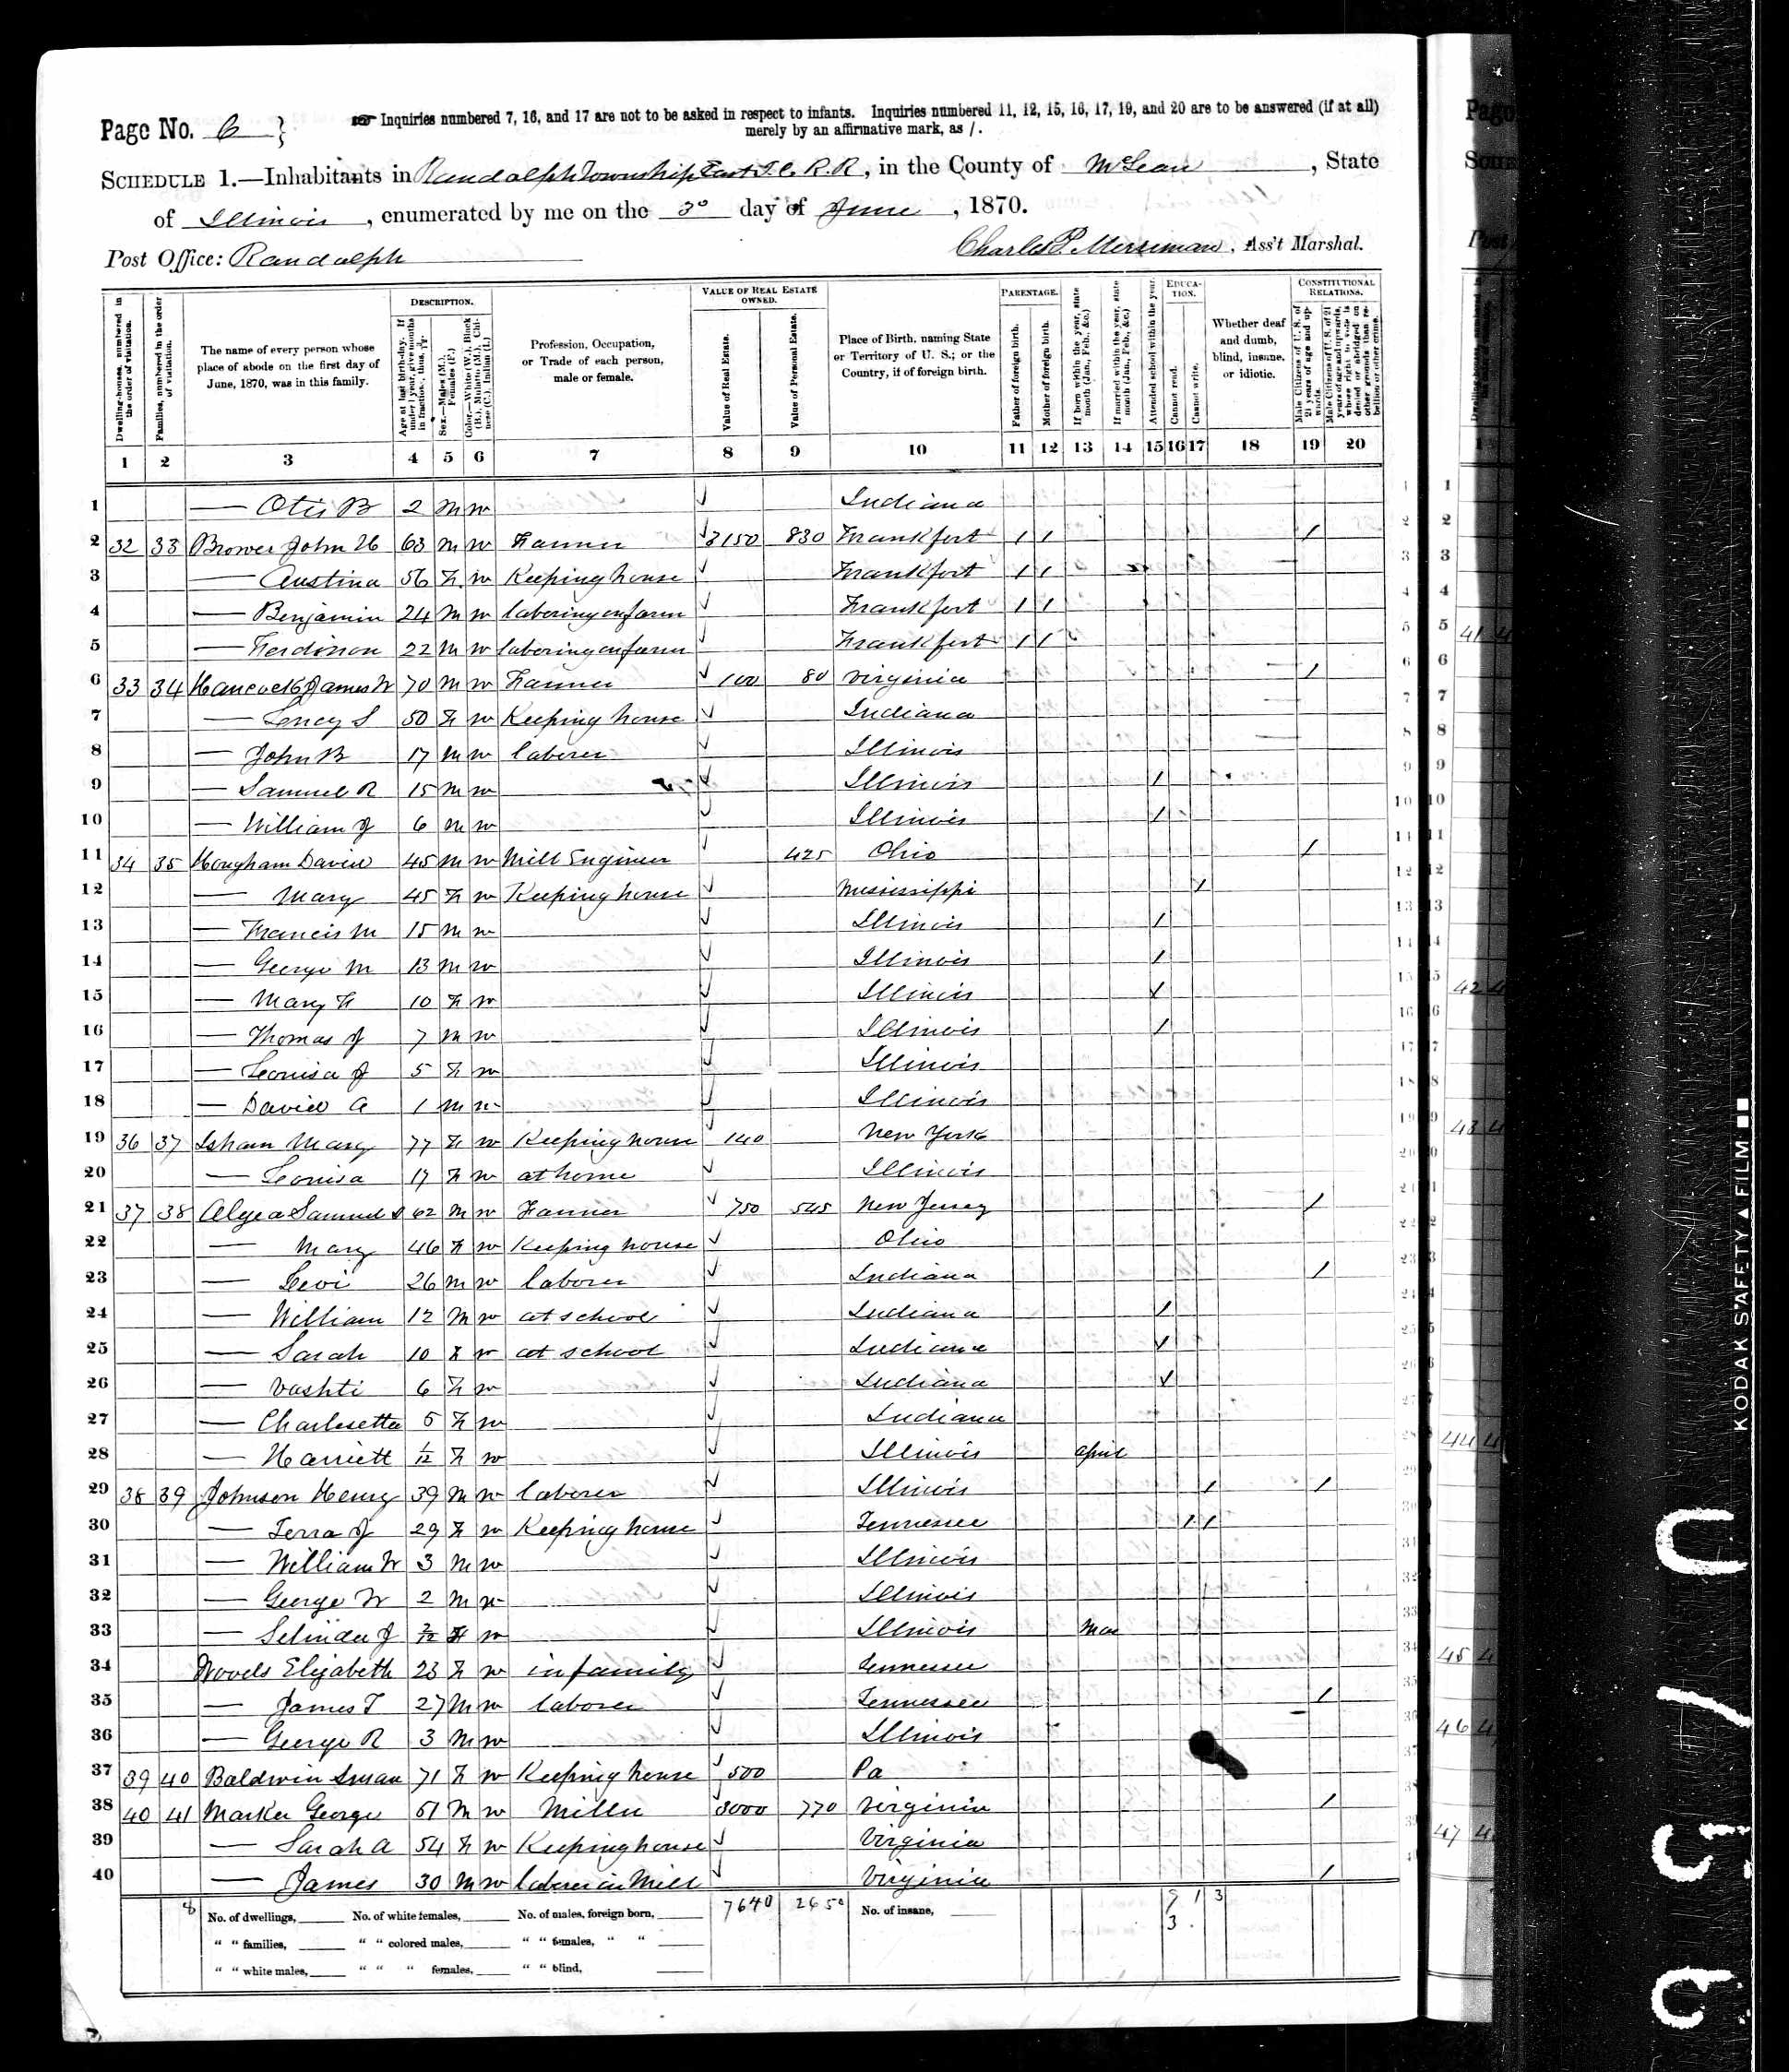 Page No. 6 }
☞ Inquiries numbered 7, 16, and 17 are not to be asked in respect to infants. Inquiries numbered 11, 12, 15, 16, 17, 19, and 20 are to be answered (if at all)
merely by an affirmative mark, as /.
SCHEDULE 1.—Inhabitants in Randolph Township East I.C.R.R, in the County of McLean, State
of Illinois, enumerated by me on the 3° day of June, 1870.
Post Office: Randolph Charles P. Merriman, Ass't Marshal.
DESCRIPTION. VALUE OF REAL ESTATE OWNED. PARENTAGE. EDUCATION. CONSTITUTIONAL RELATIONS.
Dwelling-houses, numbered in the order of visitation.
Families, numbered in the order of visitation.
The name of every person whose place of abode on the first day of June, 1870, was in this family.
Age at last birth-day. If under 1 year, give months in fractions, thus,
Sex.—Males (M.), Females (F.)
Color.—White (W.), Black (B.), Mulatto (M.), Chinese (C.), Indian (I.)
Profession, Occupation, or Trade of each person, male or female.
Value of Real Estate.
Value of Personal Estate.
Place of Birth, naming State or Territory of U. S.; or the Country, if of foreign birth.
Father of foreign birth.
Mother of foreign birth.
If born within the year, state month (Jan., Feb., &c.)
If married within the year, state month (Jan., Feb., &c.)
Attended school within the year.
Cannot read.
Cannot write.
Whether deaf and dumb, blind, insane, or idiotic.
Male Citizens of U. S. of 21 years of age and upwards.
Male Citizens of U. S. of 21 years of age and upwards, whose right to vote is denied or abridged on other grounds than rebellion or other crime.
1 2 3 4 5 6 7 8 9 10 11 12 13 14 15 16 17 18 19 20
1 — Otis B 2 M W Indiana
2 32 33 Brower John H 63 M W Farmer 3150 830 Frankfort / / /
3 — Austina 56 F W Keeping house Frankfort / /
4 — Benjamin 24 M W laboring on farm Frankfort / /
5 — Ferdinon 22 M W laboring on farm Frankfort / /
6 33 34 Hancock James W 70 M W Farmer 100 80 Virginia /
7 — S 50 F W Keeping house Indiana
8 — John B 17 M W laborer Illinois
9 — Samuel R 15 M W Illinois /
10 — William J 6 M W Illinois /
11 34 35 Hougham David 45 M W Mill Engineer 425 Ohio /
12 — Mary 45 F W Keeping house Mississippi /
13 — Francis M 15 M W Illinois /
14 — George M 13 M W Illinois /
15 — Mary F 10 F W Illinois /
16 — Thomas J 7 M W Illinois /
17 — Louisa J 5 F W Illinois
18 — David A 1 M W Illinois
19 36 37 Isham Mary 77 F W Keeping house 140 New York
20 — Louisa 17 F W at home Illinois
21 37 38 Algea Samuel 62 M W Farmer 750 545 New Jersey /
22 — Mary 46 F W Keeping house Ohio
23 — Levi 26 M W laborer Indiana /
24 — William 12 M W at school Indiana /
25 — Sarah 10 F W at school Indiana /
26 — Vashti 6 F W Indiana /
27 — Charlesetta 5 F W Indiana
28 — Harriett 1/12 F W Illinois April
29 38 39 Johnson Henry 39 M W laborer Illinois / /
30 — J 29 F W Keeping house Tennessee / /
31 — William W 3 M W Illinois
32 — George W 2 M W Illinois
33 — Selinda J 2/12 F W Illinois Mar
34 Woods Elizabeth 23 F W in family Tennessee
35 — James T 27 M W laborer Tennessee /
36 — George R 3 M W Illinois
37 39 40 Baldwin Susan 71 F W Keeping house 500 Pa
38 40 41 Marker George 51 M W Miller 3000 770 Virginia /
39 — Sarah A 54 F W Keeping house Virginia
40 — James 30 M W laborer in Mill Virginia /
8 No. of dwellings, No. of white females, No. of males, foreign born, 7640 2650 No. of insane, 9 1 3
" " families, " " colored males, " " females, " " 3
" " white males, " " " females, " " blind,
KODAK SAFETY ▲ FILM